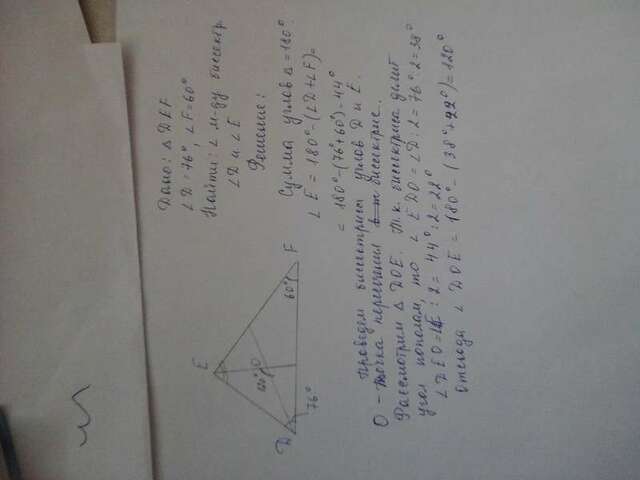 Дано: △ DEF
∠D = 76°, ∠F = 60°
Найти: ∠ м-ду биссектр.
∠D и ∠E
Решение:
Сумма углов △ = 180°
∠E = 180° - (∠D + ∠F) =
= 180° - (76° + 60°) = 44°
Проведем биссектрисы углов D и E.
O - точка пересечения биссектрис.
Рассмотрим △ DOE. т.к. биссектриса делит
угол пополам, то ∠EDO = ∠D : 2 = 76° : 2 = 38°
∠DEO = ∠E : 2 = 44° : 2 = 22°
Отсюда ∠DOE = 180° - (38° + 22°) = 120°
E
D
F
O
120°
76°
60°